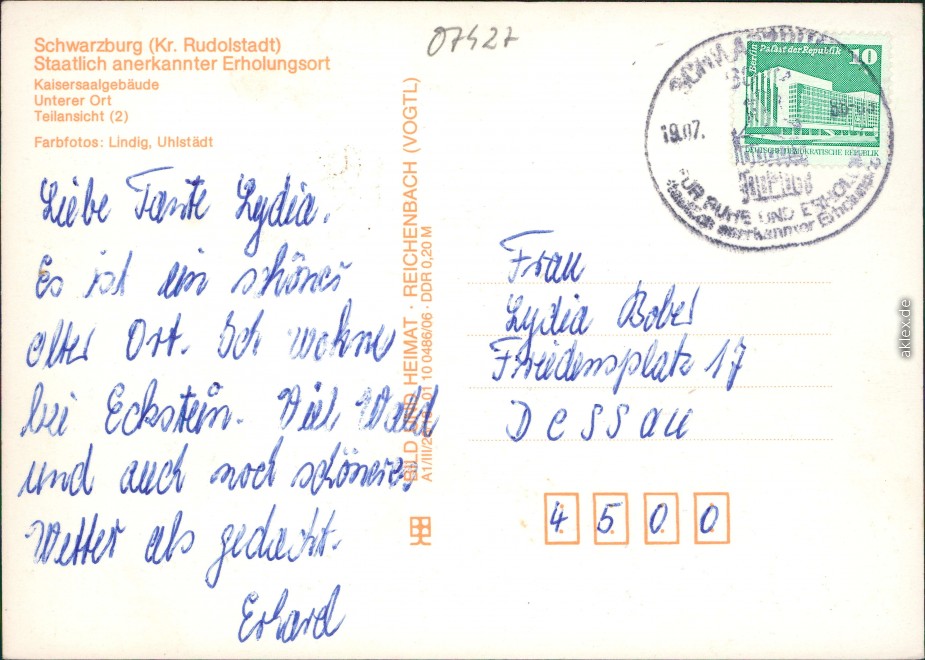 07427
Schwarzburg (Kr. Rudolstadt)
Staatlich anerkannter Erholungsort
Kaisersaalgebäude
Unterer Ort
Teilansicht (2)
Farbfotos: Lindig, Uhlstädt
Liebe Tante Lydia.
Es ist ein schönes
alter Ort. Ich wohne
bei Eckstein. Viel Wald
und auch noch schöneres
Wetter als gedacht.
Erhard
BILD UND HEIMAT · REICHENBACH (VOGTL)
A1/III/26/13 01 10 0486/06 · DDR 0,20 M
Berlin Palast der Republik
10
DEUTSCHE DEMOKRATISCHE REPUBLIK
SCHWARZBURG
19.07.
FÜR RUHE UND ERHOLUNG
staatlich anerkannter Erholungsort
Frau
Lydia Bober
Friedensplatz 17
Dessau
4 5 0 0
aklex.de